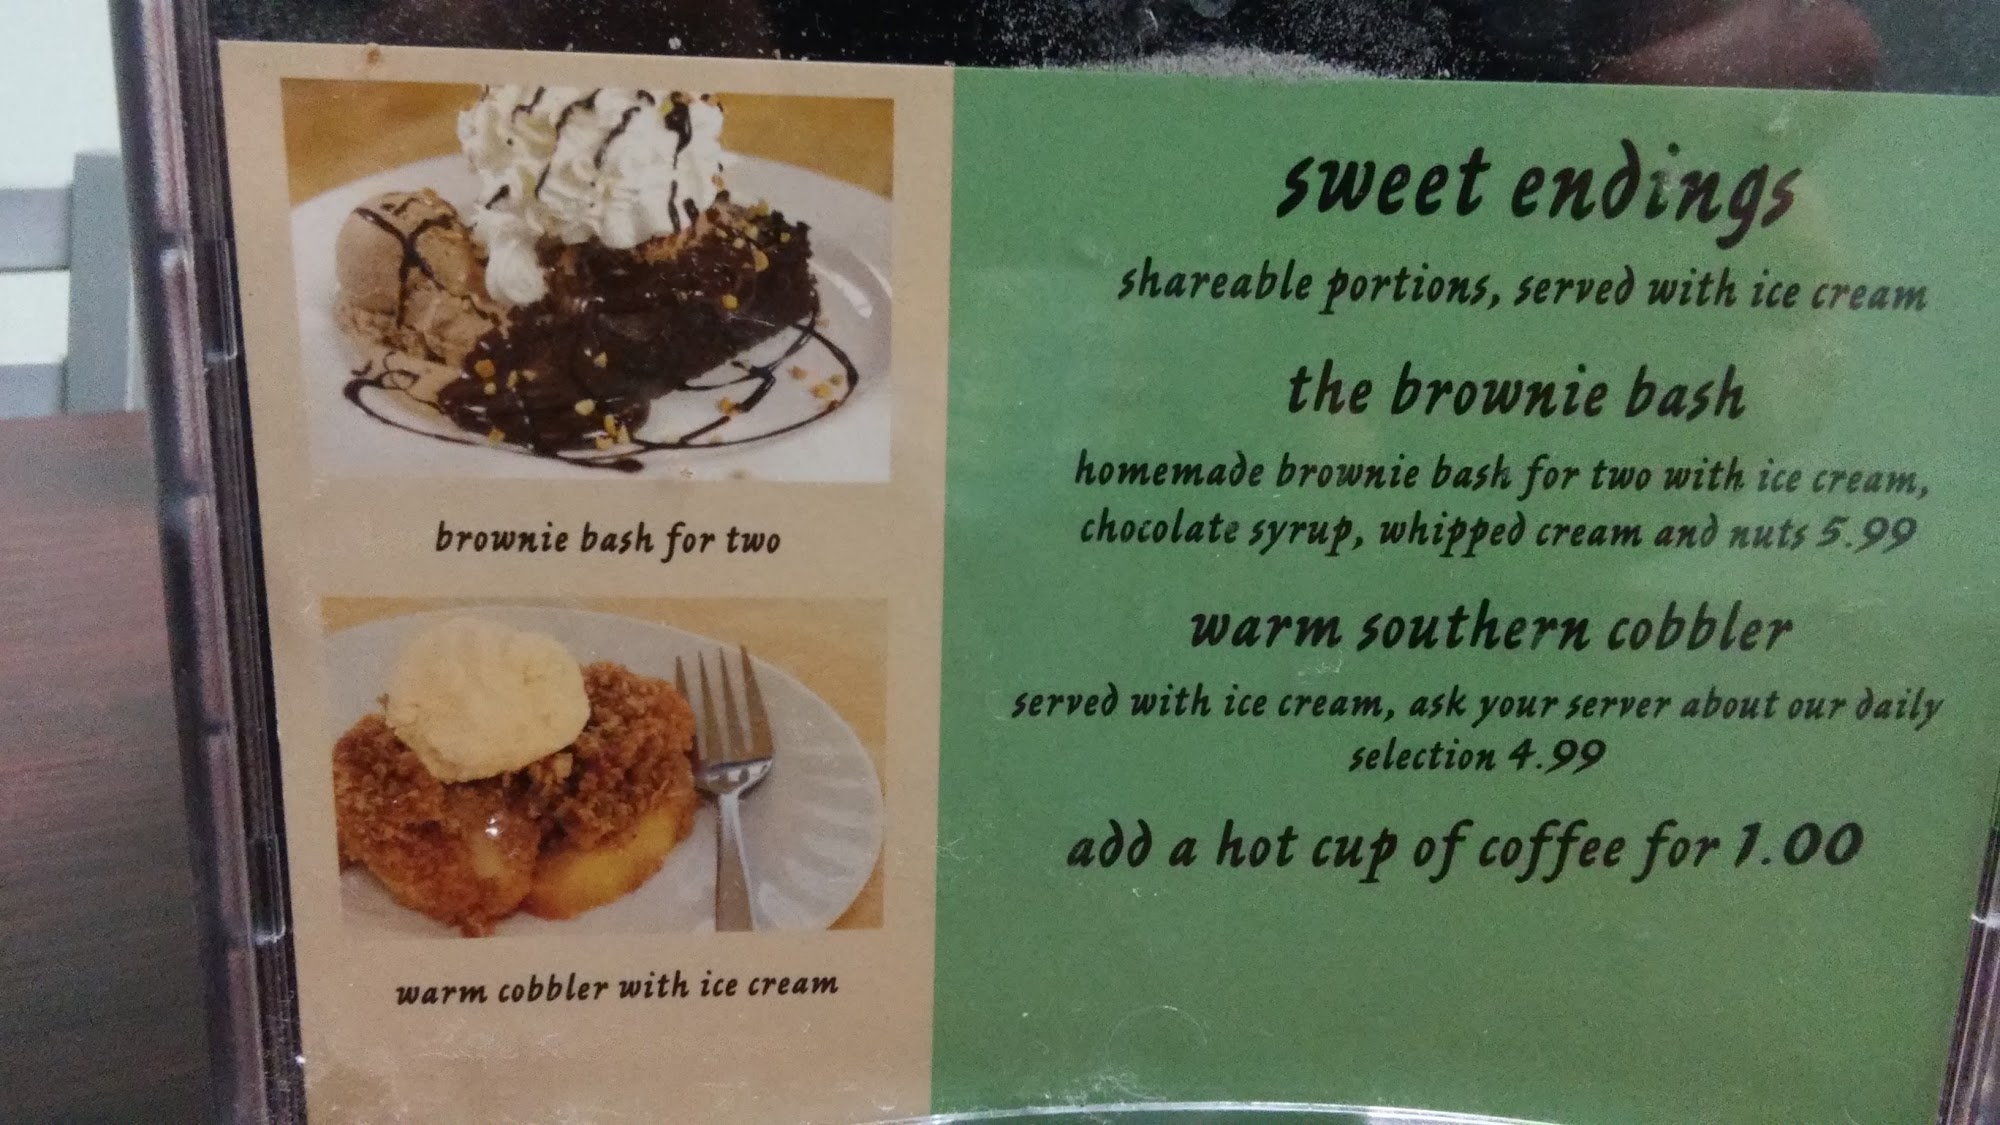 brownie bash for two
warm cobbler with ice cream
sweet endings
shareable portions, served with ice cream
the brownie bash
homemade brownie bash for two with ice cream,
chocolate syrup, whipped cream and nuts 5.99
warm southern cobbler
served with ice cream, ask your server about our daily
selection 4.99
add a hot cup of coffee for 1.00